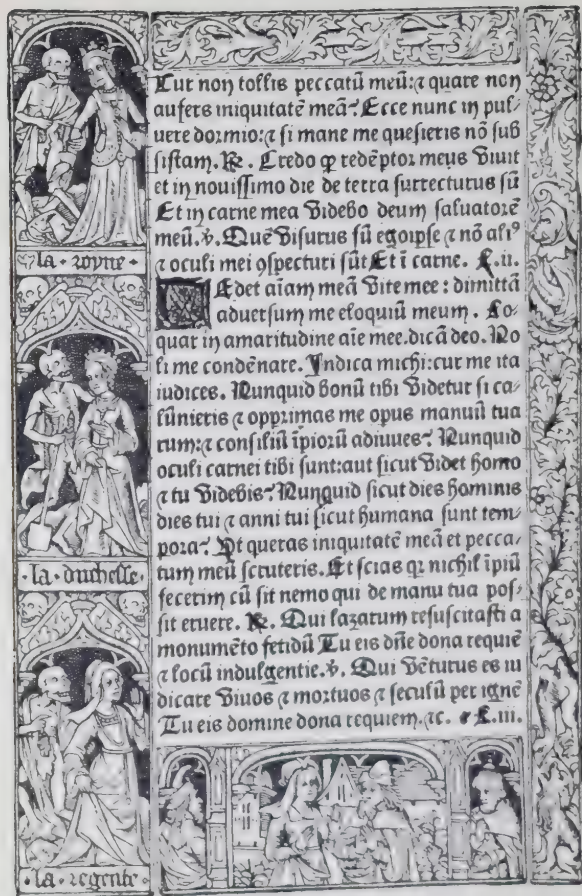 Cur non tollis peccatū meū: ⁊ quare non
aufers iniquitatē meā? Ecce nunc in pul⸗
uere dormio: ⁊ si mane me quesieris nō sub
sistam. ℞. Credo ꝙ redēptor meus viuit
et in nouissimo die de terra surrecturus sū
Et in carne mea videbo deum saluatorē
meū. ℣. Quē visurus sū egoipse ⁊ nō aliꝰ
⁊ oculi mei ꝯspecturi sūt Et ī carne. L.ii.
Tedet aīam meā vite mee: dimittā
aduersum me eloquiū meum. Lo⸗
quar in amaritudine aīe mee. dicā deo. No
li me condēnare. Indica michi: cur me ita
iudices. Nunquid bonū tibi videtur si ca⸗
lūnieris ⁊ opprimas me opus manuū tua
rum: ⁊ consiliū īpiorū adiuues? Nunquid
oculi carnei tibi sunt: aut sicut videt homo
⁊ tu videbis? Nunquid sicut dies hominis
dies tui ⁊ anni tui sicut humana sunt tem⸗
pora? Vt queras iniquitatē meā et pecca⸗
tum meū scruteris. Et scias qꝛ nichil īpiū
fecerim cū sit nemo qui de manu tua pos⸗
sit eruere. ℞. Qui lazarum resuscitasti a
monumēto fetidū Tu eis dn̄e dona requiē
⁊ locū indulgentie. ℣. Qui vēturus es iu
dicare viuos ⁊ mortuos ⁊ seculū per ignē
Tu eis domine dona requiem. ⁊c. L.iii.
la royne
la duchesse
la regente